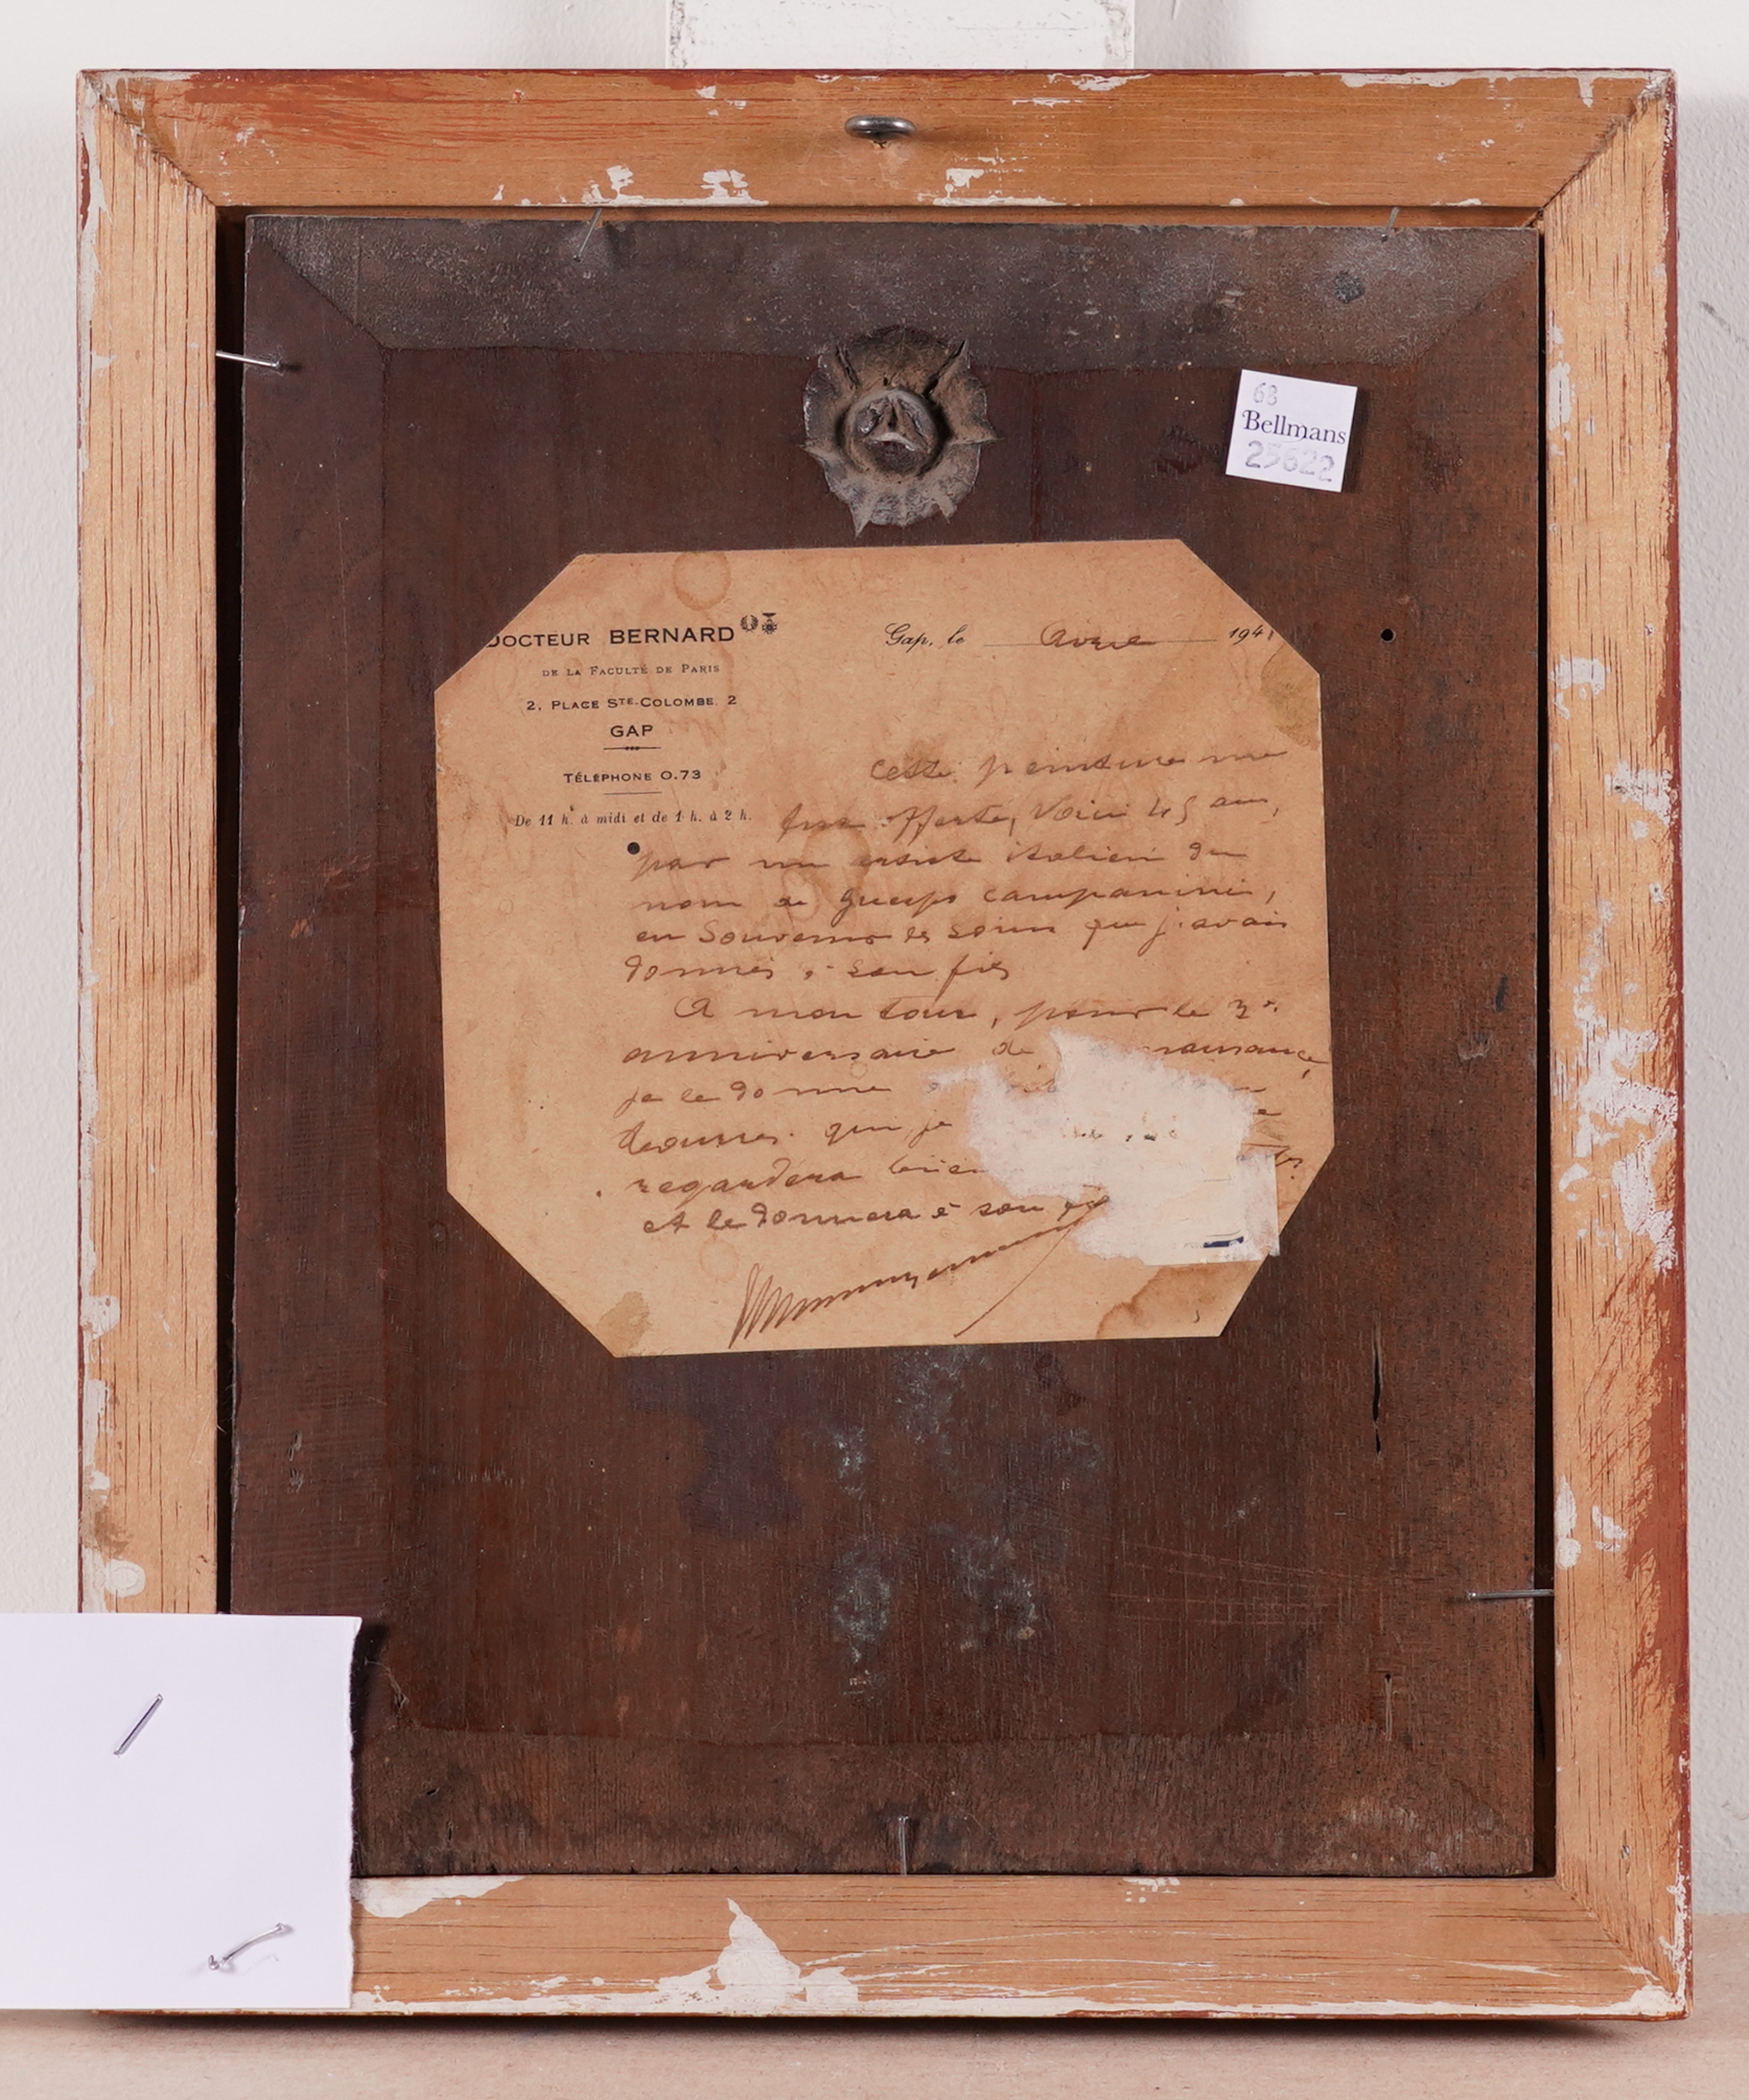 68
Bellmans
25622
DOCTEUR BERNARD
DE LA FACULTÉ DE PARIS
2, PLACE STE-COLOMBE, 2
GAP
TÉLÉPHONE 0.73
De 11 h. à midi et de 1 h. à 2 h.
Gap, le Avril 1941
Cette peinture me
fut offerte, voici 45 ans,
par un artiste italien du
nom de campanini,
en souvenir des soins que j'avais
donnés à son fils
A mon tour, pour le 3e
anniversaire de naissance,
je le donne
qui je
regardera bien
et le donnera à son